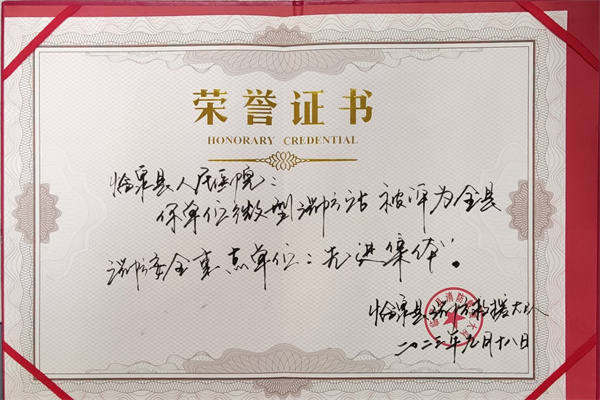 荣誉证书
HONORARY CREDENTIAL
临泉县人民医院：
你单位微型消防站被评为全县
消防安全重点单位：先进集体"。
临泉县消防救援大队
二〇二三年九月十八日